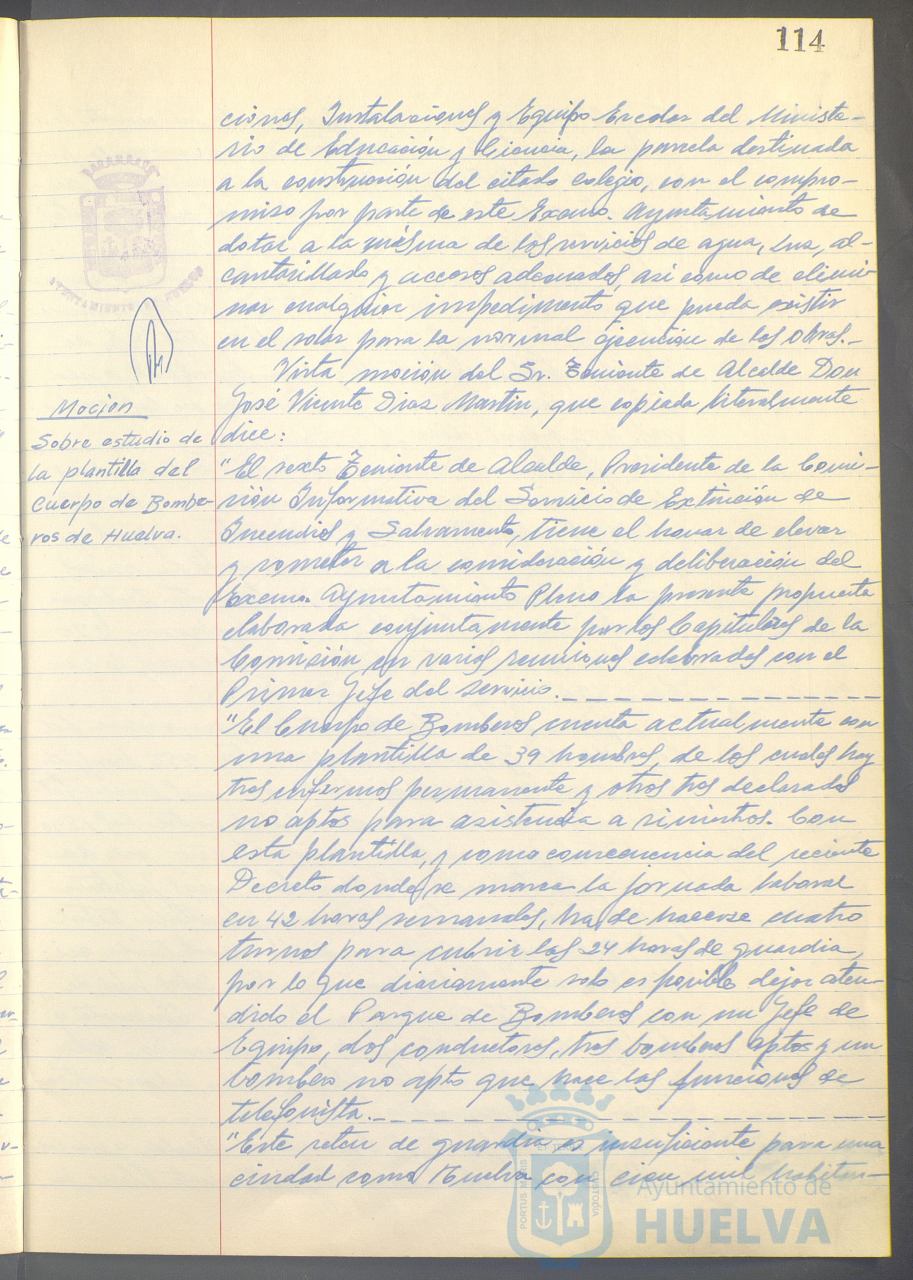 114
ciones, Instalaciones y Equipo Escolar del Ministe-
rio de Educación y Ciencia, la parcela destinada
a la construcción del citado colegio, con el compro-
miso por parte de este Excmo. Ayuntamiento de
dotar a la misma de los servicios de agua, luz, al-
cantarillado y accesos adecuados, asi como de elimi-
nar cualquier impedimento que pueda existir
en el solar para la normal ejecución de las obras.-
Vista moción del Sr. Teniente de Alcalde Don
José Vicente Diaz Martin, que copiada literalmente
dice:
Mocion
Sobre estudio de
la plantilla del
Cuerpo de Bombe-
ros de Huelva.
"El sexto Teniente de Alcalde, Presidente de la Comi-
sión Informativa del Servicio de Extinción de
Incendios y Salvamento, tiene el honor de elevar
y someter a la consideración y deliberación del
Excmo. Ayuntamiento Pleno la presente propuesta
elaborada conjuntamente por los Capitulares de la
Comisión en varias reuniones celebradas con el
Primer Jefe del Servicio.
"El Cuerpo de Bomberos cuenta actualmente con
una plantilla de 39 hombres, de los cuales hay
tres enfermos permanente y otros tres declarados
no aptos para asistencia a siniestros. Con
esta plantilla, y como consecuencia del reciente
Decreto donde se marca la jornada laboral
en 42 horas semanales, ha de hacerse cuatro
turnos para cubrir las 24 horas de guardia,
por lo que diariamente solo es posible dejar aten-
dido el Parque de Bomberos con un Jefe de
Equipo, dos conductores, tres bomberos aptos y un
bombero no apto que hace las funciones de
telefonista.-
"Este reten de guardia es insuficiente para una
ciudad como Huelva con cien mil habitan-
PORTUS MARIS
CUSTODIA
Ayuntamiento de
HUELVA